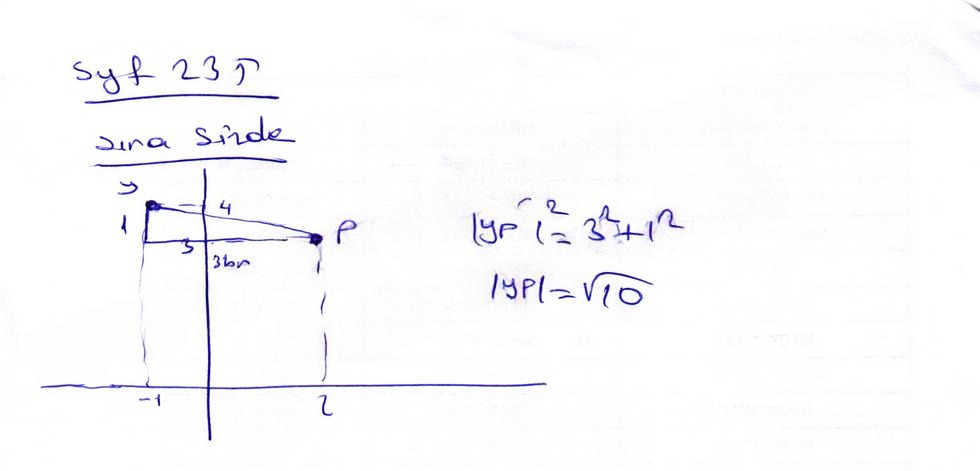 Syf 235
sıra sizde
y
4
1
P
3
3br
|yP|² = 3²+1²
|yP| = √10
-1
2